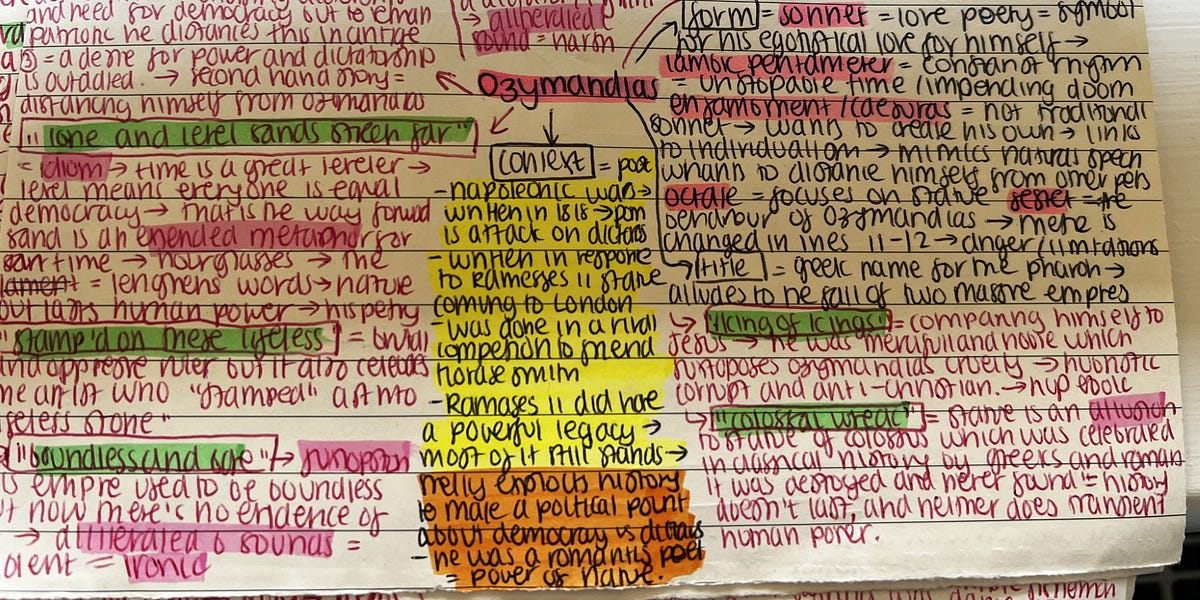 and need for democracy but to remain
patriotic he distances this in antique
= a desire for power and dictatorship
is outdated. → second hand story =
distancing himself from ozymandias
"lone and level sands strech far"
= idiom → time is a great leveler →
level means everyone is equal
democracy → that is he way forward
sand is an extended metaphor for
time → hourglasses → the
= lengthens words → nature
out lasts human power → his petty
"stamp'd on these lifeless" =
and oppresive ruler but it also
artist who "stamped" art into
stone"
"boundless and bare" →
empire used to be boundless
now there's no evidence of
→ alliterated b sounds =
= ironic
→ alliterated
sound = harsh
Ozymandias
context = post
- napoleonic wars →
written in 1818 → poem
is attack on dictators
- written in response
to Ramesses II statue
coming to London
- was done in a rival
competition to friend
horase smith
- Ramases II did have
a powerful legacy →
most of it still stands →
shelly exploits history
to make a political point
about democracy vs dictators
- he was a romantis poet
= power of nature.
form = sonnet = love poetry = symbol
for his egotistical love for himself →
iambic pentameter = constant rhythm
= unstopable time / impending doom
enjambment / caesuras = not traditional
sonnet → wants to create his own → links
to individualism → mimics natural speech
whants to distance himself from other poets
octave = focuses on statue sestet = the
behaviour of Ozymandias → there is
changed in lines 11-12 → anger / limitations
title = greek name for the pharoh →
alludes to he fall of two massive empires
↳ "king of kings" = comparing himself to
Jesus → he was merciful and noble which
juxtaposes ozymandias cruelty → hubristic
corrupt and anti-christian. → hyperbole
↳ "colossal wreck" = statue is an allusion
to statue of colossus which was celebrated
in classical history by greeks and roman
it was destroyed and never found = history
doesn't last, and neither does transient
human power.